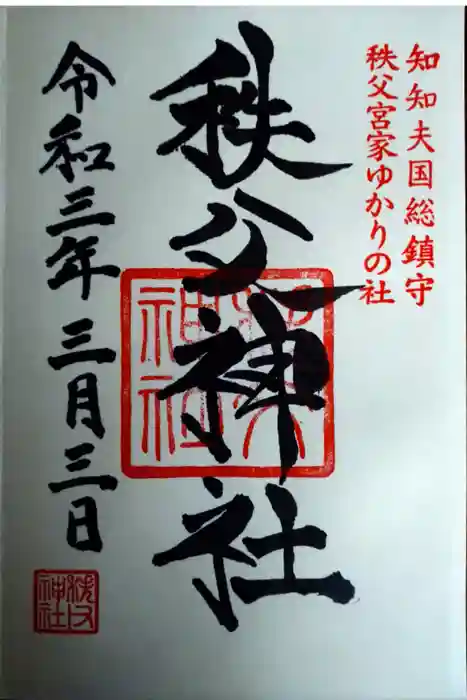 知知夫国総鎮守
秩父宮家ゆかりの社
秩父神社
令和三年三月三日
秩父
神社
秩父
神社